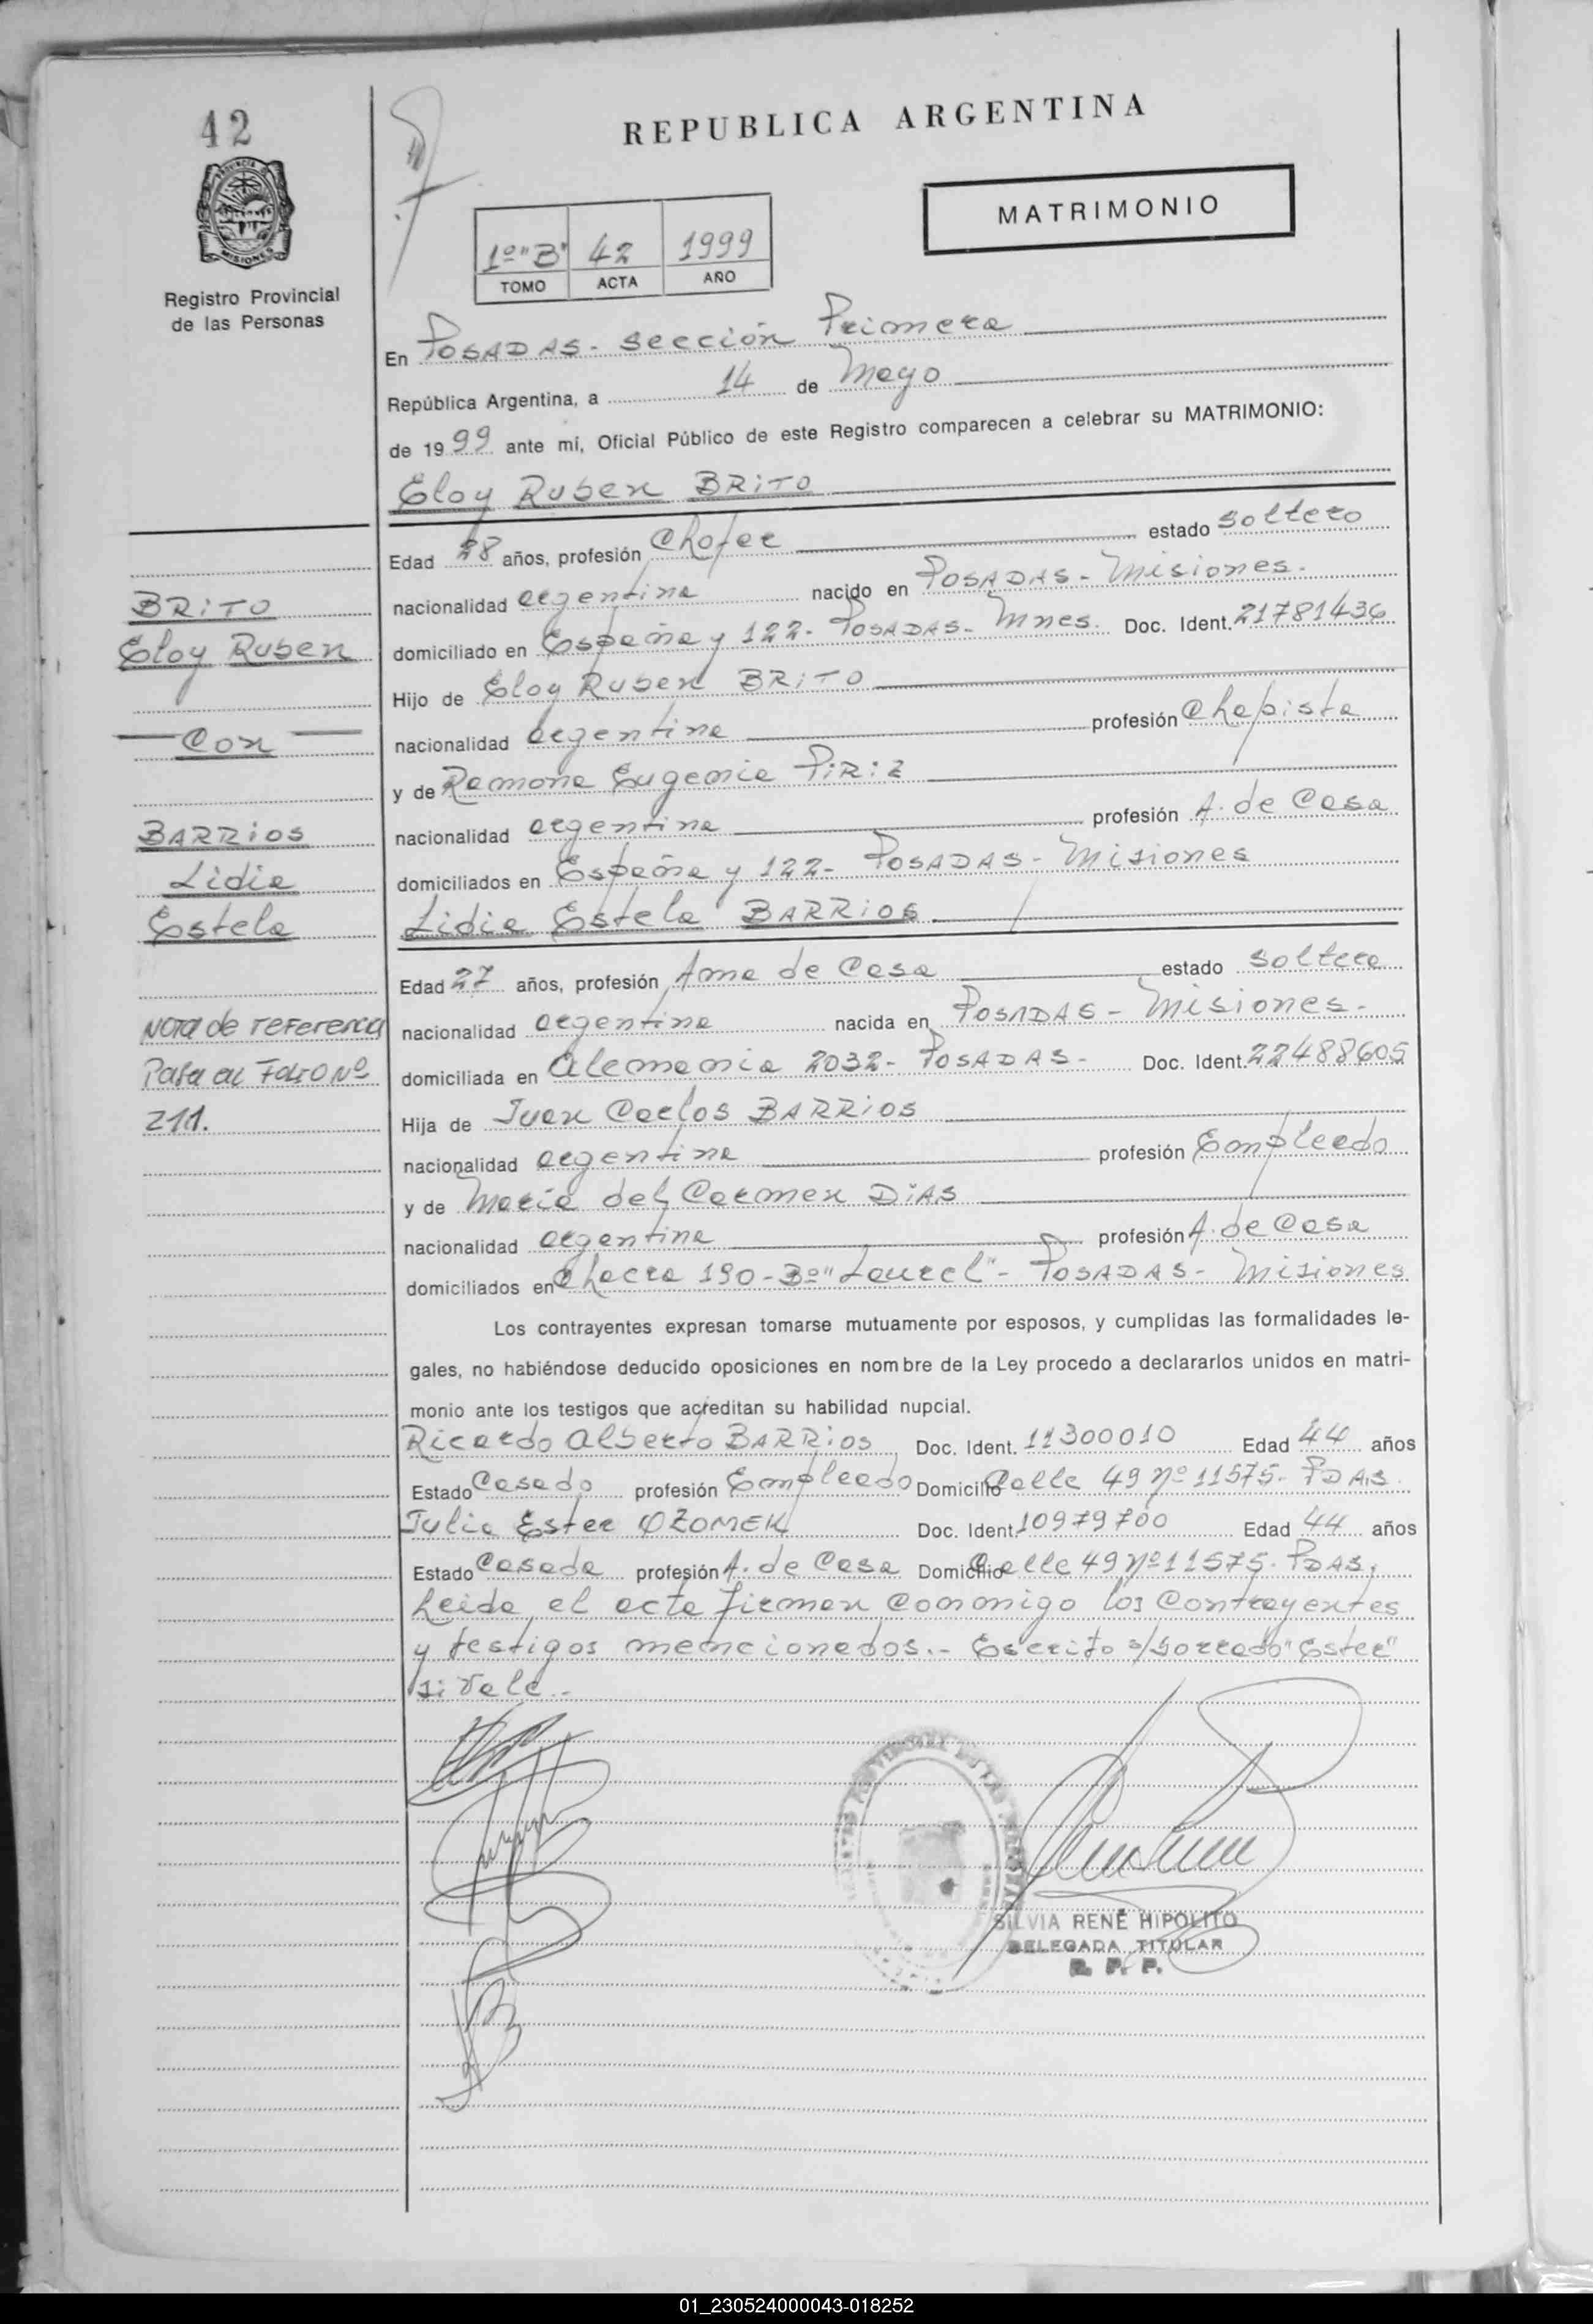 42
REPUBLICA ARGENTINA
MATRIMONIO
PROVINCIA
MISIONES
1º "B" 42 1999
TOMO ACTA AÑO
Registro Provincial
de las Personas
En POSADAS - Sección Primera
República Argentina, a 14 de Mayo
de 1999 ante mí, Oficial Público de este Registro comparecen a celebrar su MATRIMONIO:
Eloy Ruben BRITO
Edad 28 años, profesión Chofer estado soltero
nacionalidad argentina nacido en POSADAS - Misiones.
domiciliado en España y 122 - POSADAS - Mnes. Doc. Ident. 21781436
Hijo de Eloy Ruben BRITO
nacionalidad argentina profesión Chapista
y de Ramona Eugenia PIRIZ
nacionalidad argentina profesión A. de Casa
domiciliados en España y 122 - POSADAS - Misiones
Lidia Estela BARRIOS
Edad 27 años, profesión Ama de Casa estado soltera
nacionalidad argentina nacida en POSADAS - Misiones -
domiciliada en Alemania 2032 - POSADAS - Doc. Ident. 22488605
Hija de Juan Carlos BARRIOS
nacionalidad argentina profesión Empleado
y de María del Carmen DIAS
nacionalidad argentina profesión A. de Casa
domiciliados en Chacra 190 - Bº "Laurel" - POSADAS - Misiones
Los contrayentes expresan tomarse mutuamente por esposos, y cumplidas las formalidades le-
gales, no habiéndose deducido oposiciones en nombre de la Ley procedo a declararlos unidos en matri-
monio ante los testigos que acreditan su habilidad nupcial.
Ricardo Alberto BARRIOS Doc. Ident. 11300010 Edad 44 años
Estado Casado profesión Empleado Domicilio Calle 49 Nº 11575 - PDAS.
Julia Ester OZOMEK Doc. Ident. 10979700 Edad 44 años
Estado Casada profesión A. de Casa Domicilio Calle 49 Nº 11575 - PDAS.
Leída el acta firman conmigo los contrayentes
y testigos mencionados.- Escrito s/borrado "Ester"
si vale.-
BRITO
Eloy Ruben
Con
BARRIOS
Lidia
Estela
Nota de referencia
Pasa al Folio Nº
211.
SILVIA RENÉ HIPOLITO
DELEGADA TITULAR
R. P. P.
01_230524000043-018252